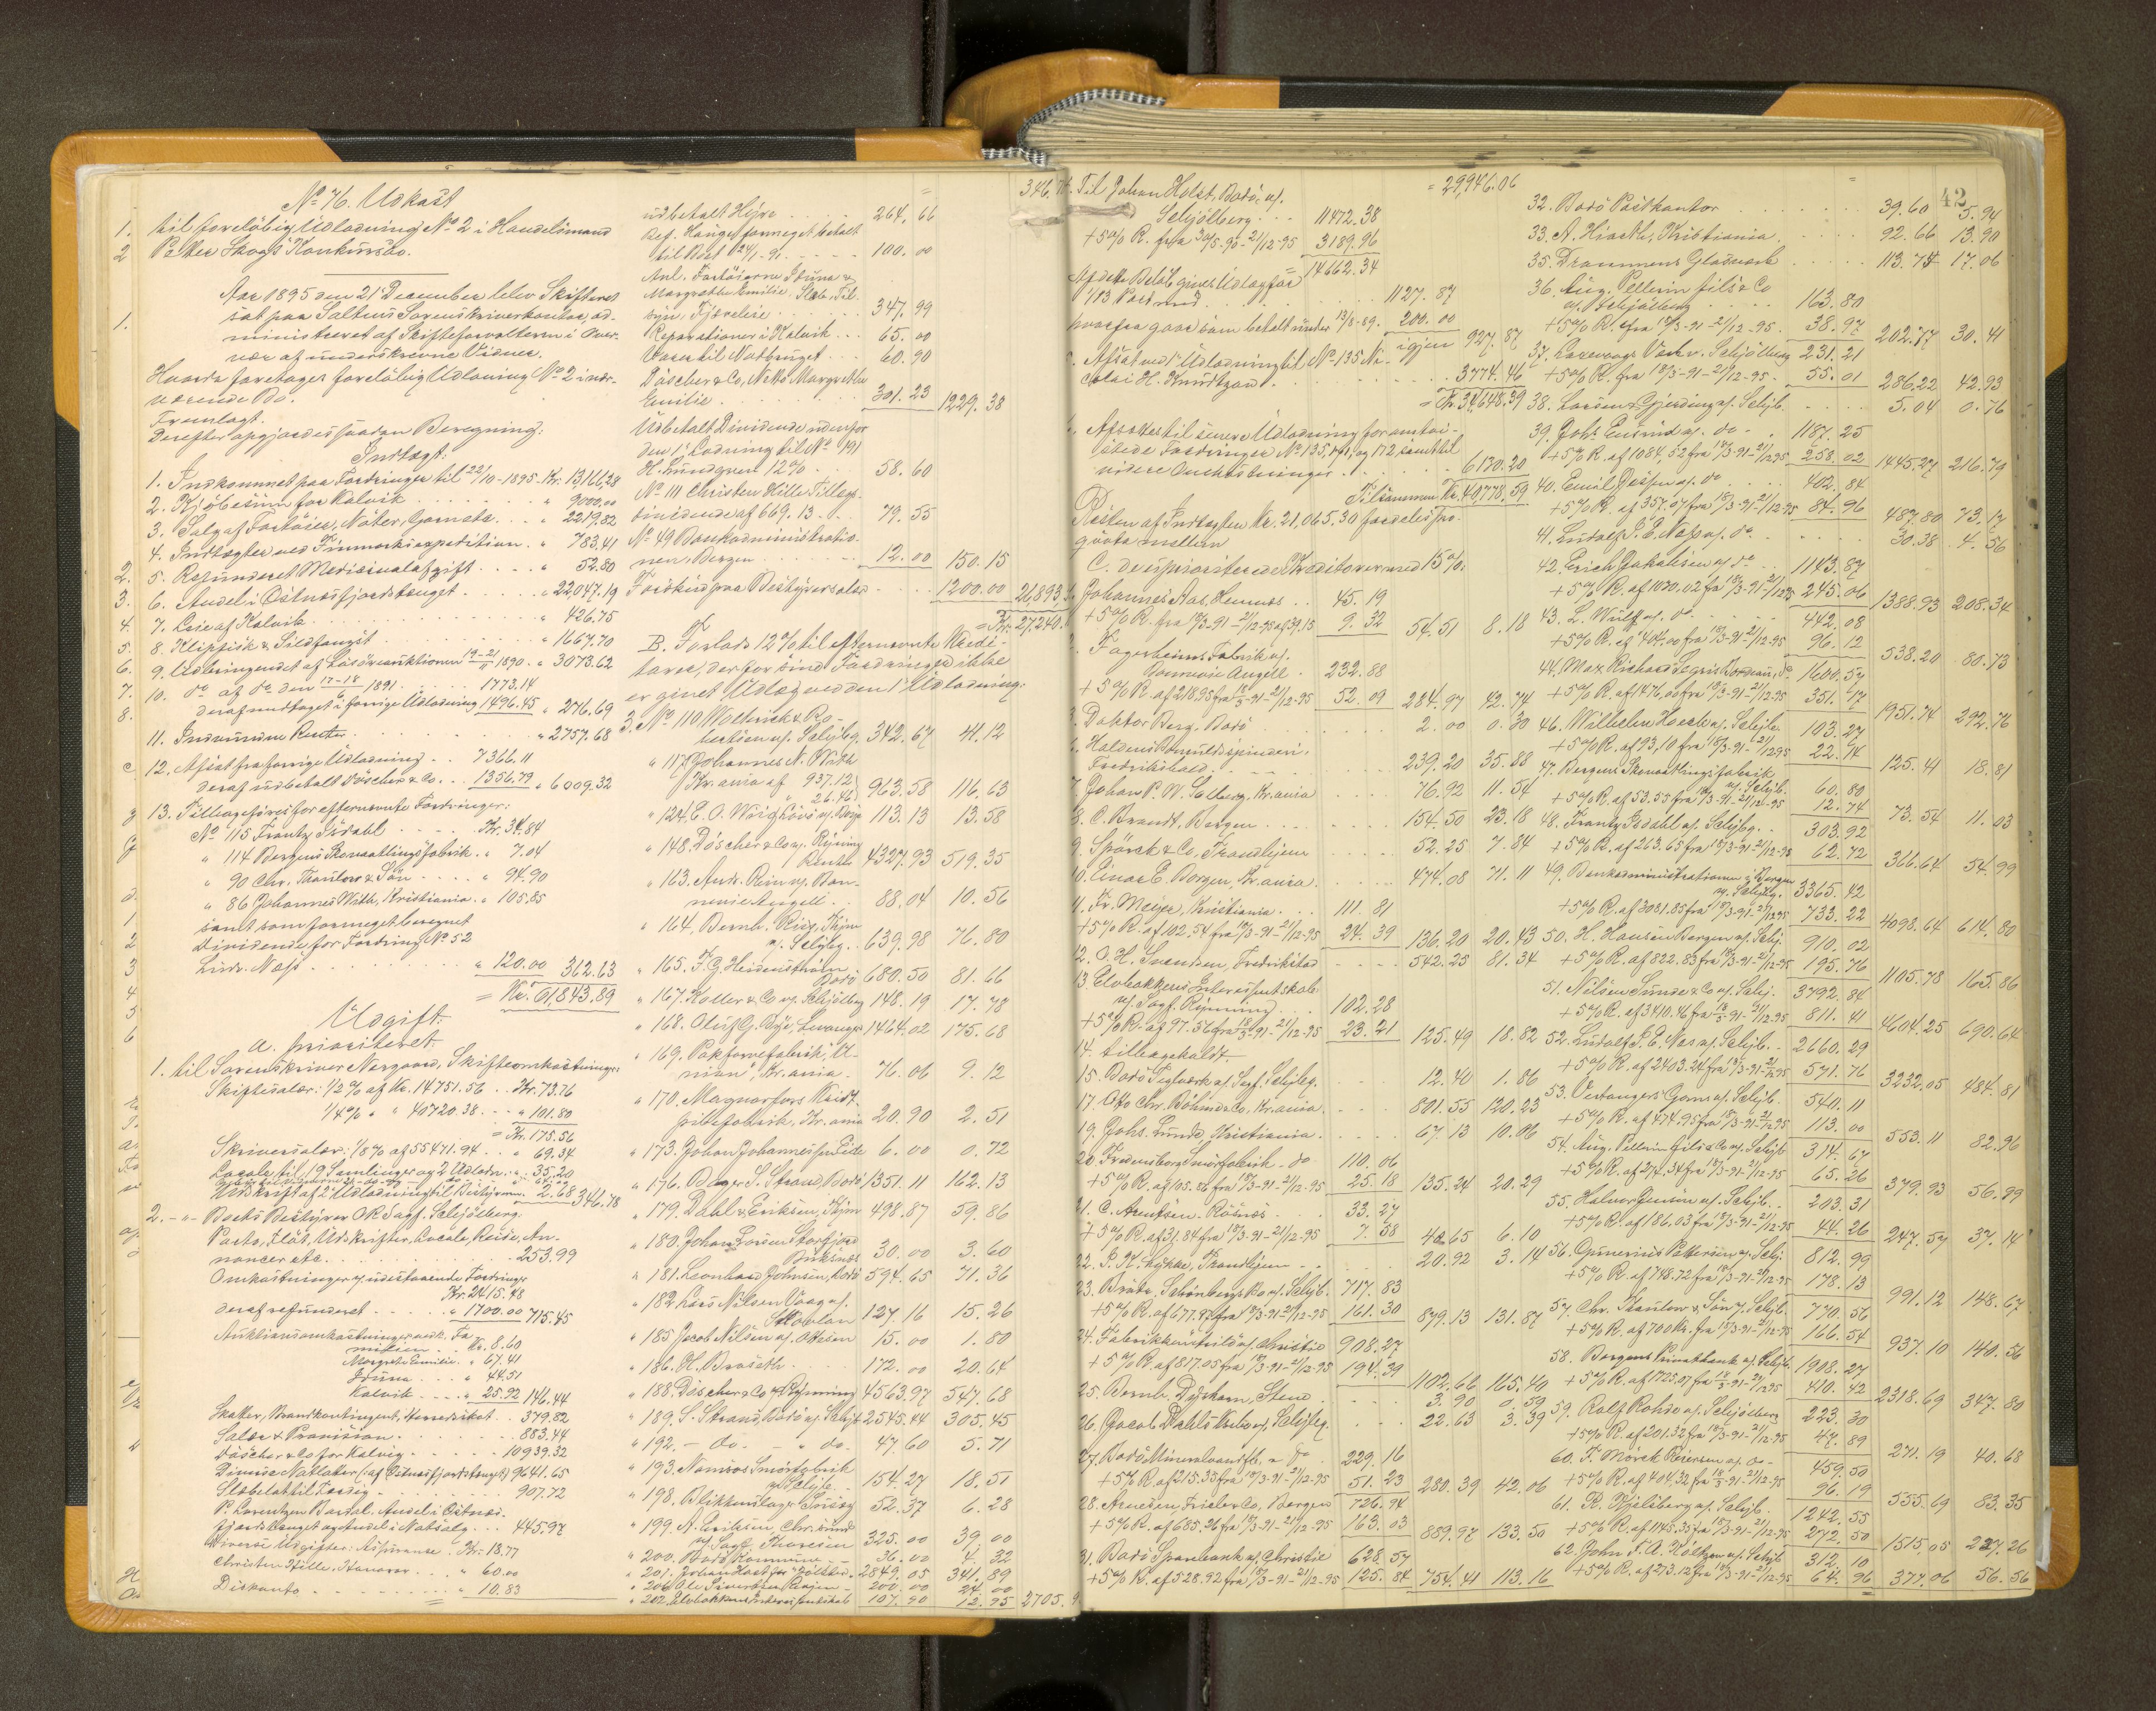 No 76. Udkast
til foreløbig Udlodning No 2 i Handelsmand
Petter Skogs Konkursbo.
Aar 1895 den 21 December blev Skifteret
sat paa Saltens Sorenskriverkontor, ad-
ministreret af Skifteforvalteren i Over-
vær af underskrevne Vidner.
Hvorda foretoges foreløbig Udlodning No 2 i nær-
værende Bo.
Fremlagt.
Derefter opgjordes saadan Beregning:
Indtægt:
1. Indkommet paa Fordringer til 22/10-1895. Kr. 13,166,28
2. Kjøbesum for Kalvik " 9000,00
3. Salg af Fartøier, Nøter, Garn etc. " 2219,82
4. Indtægter ved Finmarksexpedition " 783,41
5. Refunderet Medicinalafgift " 52.80
6. Andel i Østnesfjordstænget " 22,047,19
7. Leie af Kalvik " 426.75
8. Klipfisk & Sildfangst " 1667.70
9. Udbringendet af Løsøreauktionen 19-21/5 1890. " 3073.62
10. do af do den 17-18/6 1891 1773.14
deraf medtaget i forrige Udlodning 1496.45 " 276.69
11. Indvundne Renter " 2757.68
12. Afsat fra forrige Udlodning 7366.11
deraf udbetalt Döscher & Co. 1356.79 " 6009.32
13. Tilbageføres for efternævnte Fordringer:
No 115 Frantz Isdahl Kr. 34,84
" 114 Bergens Skomatlingsfabrik " 7.04
" 90 Chr. Thaulow & Søn " 94.90
" 86 Johannes With, Kristiania " 105,85
samt som formeget beregnet
Dividende for Fordring No 52
Ludv. Næss " 120.00 362.63
= Kr. 61843.89
Udgift:
A. prioriteret.
1. til Sorenskriver Norgaard, Skifteomkostninger
Skiftesalær: 1/2 % af Kr. 14751.56 Kr. 73.76
1/4 % " " 40720.38 " 101.80
= Kr. 175.56
Skriversalær: 1/8 % af 55471.94 " 69.34
Locale til 19 Samlinger og 2 Udlodn. " 35.20
Udskrift af 2 Udlodning til Bestyreren 2.68 346.78
2. -"- Boets Bestyrer O.R. Sagf. Schjölberg:
Porto, Flöt, Udskrifter, Locale, Reise, An-
noncer etc. 253.99
Omkostninger vedrestaaende Fordringer
Kr. 2415.48
deraf refunderet " 1700.00 715.45
Auktionsomkostninger
Kr. 8.60
Margrethe Emilie " 67.41
Iduna " 44.51
Kalvik " 25.92 146.44
Skatter, Brandkontingent, Herredsskat 379,82
Salær & Provision 883.44
Döscher & Co for Kalvig 10939.32
Diverse Notlaker (af Østnesfjordstænget) 9641.65
Slæbelot til 907.72
P. Lorentzen Bardal. Andel i Østnes-
fjordstænget og Andel i Notsalg 445.97
Diverse Udgifter: Assurance Kr. 18.77
Christen Hille, Honorar " 60.00
Diskonto " 10.83
udbetalt Hyre 264.66
Ref. Hauges formeget betalt
til Boet 24/1-91 100.00
Anl. Fartøierne Iduna &
Margrethe Emilie. Slæb, Til-
syn, Fjæreleie 347.99
Reparationer i Kalvik 65.00
Varer til Notbruget 60.90
Döscher & Co, Netto Margrethe
Emilie 301.23 1229.38
Udbetalt Dividende udenfor
den 1ste Lodning til No 191
H. Lundgreen 12% 58.60
No 111 Christen Hille Tillægs-
dividende af 669.13 79.55
No 49 Bankadministratio-
nen, Bergen 12.00 150.15
Forskud paa Bestyrersalær 1200.00 26,893.
= Kr. 27240.
B. Forlods 12% til efternævnte Kredi-
torer, der for sine Fordringer ikke
er givet Udlæg ved den 1ste Udlodning:
3. No 110 Woltmek & Ro-
bertsen v/. Schjbg. 342.67 41.12
" 117 Johannes N. With
Kr.ania af 937.12 26.46 963.58 116.63
" 124 E. O. Wiig 113.13 13.58
" 148 Döscher & Co v/. Rynning
Rente 4327.93 519.35
" 163. Andr. Rim v/. Bon-
nevie Angell 88.04 10.56
" 164. Bernh. Riis, Thjem
v/. Schjbg. 639.98 76.80
" 165. F. G. Heidenstrøm
Bodø 680.50 81.66
" 167. Koller & Co v/. Schjölberg 148.19 17.78
" 168. Oluf G. Bye, Levanger 1464.02 175.68
" 169. Papforvefabrik, "U-
nion", Kr.ania 76.06 9.12
" 170. Magnorfors Kridt-
pibefabrik, Kr.ania 20.90 2.51
" 173. Johan Johannessen Eide 6.00 0.72
" 176. Boger S. Strand Bodø 1351.11 162.13
" 179. Dahl & Eriksen, Thjem 498.87 59.86
" 180. Johan Larsen Storfjord
Buksnes 30.00 3.60
" 181. Leonhard Johnsen, Bodø 594.65 71.36
" 182 Lars Nilsen Vaag v/.
127.16 15.26
" 185 Jacob Nilsen v/. Ottesen 15.00 1.80
" 186. H. Braseth 172.00 20.64
" 188. Döscher & Co v/ Rynning 4563.97 547.68
" 189. S. Strand, Bodø v/. Schjb. 2545.44 305.45
" 192. - do. - " do. 47.60 5.71
" 193. Namsos Smørfabrik
v/ Schjb. 154.27 18.51
" 198. Blikkenslager 52.37 6.28
" 199. A. Eriksen, Chr.sund
v/. Sagf. Thoresen 325.00 39,00
" 200. Bodø Kommune 36.00 4.32
" 201. Johan Hast for 2849.05 341.89
" 206 Ole Sivertsen 200.00 24.00
" 202. Elvebakkens Interessentskab 107.90 12.95 2705.9
346.78. Til Johan Holst, Bodø, v/. = 29,946.06
Schjölberg 11472.38
+5% R. fra 30/5-90-21/12-95 3189.96
14662.34
Af dette Beløb gives Udlæg for
1/13 Part med 1127.87
hvorfra gaar som betalt under 13/8-89. 200.00
igjen 927.87
5. Afsat ved 1ste Udlodning til No 135 Ni-
colai H. Knudtzon 3774.46
= Kr. 34,648.39
6. Afsættes til senere Udlodning for omtvi-
stede Fordringer No 135, 171, og 172 samt til
videre Omkostninger 6130.20
Tilsammen Kr. 40,778.59
Resten af Indtægten Kr. 21,065.30 fordeles pro-
qvota mellem
C. de uprioriterede Kreditorer med 15%.
1. Johannes Aas, Hemnes 45.19
+5% R. fra 18/3-91-21/12-95 af 39.15 9.32 54.51 8.18
2. Fagerheims Fabrik v/.
Bonnevie Angell 232.88
+5% R. af 218.95 fra 18/3-91-21/12-95 52.09 284.97 42.74
3. Doktor Berg, Bodø 2.00 0.30
6. Haldens Bomuldsspinderi,
Fredrikshald 239.20 35.88
7. Johan P. W. Solberg, Kr.ania 76.92 11.54
8. C. Brandt, Bergen 154.50 23.18
9. Spörck & Co, Trondhjem 52.25 7.84
10. Einar E. Borgen, Kr.ania 474.08 71.11
11. Fr. Meyer, Kristiania 111.81
+5% R. af 102.54 fra 18/3-91-21/12-95 24.39 136.20 20.43
12. O. H. Svendsen, Fredrikstad 542.25 81.34
13. Elvebakkens Interessentskab
v/. Sagf. Rynning 102.28
+5% R. af 97.56 fra 18/3-91-21/12-95 23.21 125.49 18.82
14. tilbagekaldt.
15. Bodø Teglværk v/. Sagf. Schjbg. 12.40 1.86
17. Otto Chr. Böhme & Co, Kr.ania 801.55 120.23
19. Johs. Lunde, Kristiania 67.13 10.06
20. Fredensborg Smørfabrik - do 110.06
+5% R. af 105.86 fra 18/3-91-21/12-95 25.18 135.24 20.29
21. C. Arentsen, Rösnes 33.27
+5% R. af 31,84 fra 18/3-91-21/12-95 7.58 40.65 6.10
22. J. N. Bryhae, Trondhjem 20.92 3.14
23. Brødr. Schönbergs Bo v/. Schjb. 717.83
+5% R. af 677.97 fra 18/3-91-21/12-95 161.30 879.13 131.87
24. Fabrikkørnfeild v/. Christie 908.27
+5% R. af 817.05 fra 18/3-91-21/12-95 194.39 1102.66 165.40
25. Bernh. Dybham, Stene 3.90 0.59
26. Jacob Dahls Enke v/. Schjbg. 22.63 3.39
27. Bodø Mineralvandfb. - do 229.16
+5% R. af 215.35 fra 18/3-91-21/12-95 51.23 280.39 42.06
28. Arnesen Trieler Co, Bergen 726.94
+5% R. af 685.26 fra 18/3-91-21/12-95 163.03 889.97 133.50
31. Bodø Sparebank v/. Christie 628.57
+5% R. af 528.92 fra 18/3-91-21/12-95 125.84 754.41 113.16
42
32. Bodø Postkontor 39.60 5.94
33. A. Hiorth, Kristiania 92.66 13.90
35. Drammens Glasværk 113.74 17.06
36. Aug. Pellerin fils & Co
v/. Schjölberg 163.80
+5% R. fra 18/3-91-21/12-95. 38.97 202.77 30.41
37. Larevaags Værk v. Schjölberg 231.21
+5% R. fra 18/3-91-21/12-95. 55.01 286.22 42.93
38. Larsen & Gjerding v/. Schjb. 5.04 0.76
39. Johs Ensrud v/. do 1187.25
+5% R. af 1084,52 fra 18/3-91-21/12-95 258.02 1445.27 216.79
40. Emil Jespersen v/. do 402.84
+5% R. af 357.07 fra 18/3-91-21/12-95 84.96 487.80 73.17
41. Ludolf P. E. Næss v/. do 30.38 4.56
42. Erich Jakobsen v/. do 1143.87
+5% R. af 1030.02 fra 18/3-91-21/12-95 245.06 1388.93 208.34
43. L. Wulf v/. do 442.08
+5% R. af 404,00 fra 18/3-91-21/12-95 96.12 538.20 80.73
44. Max Richard 1600.57
+5% R. af 1476,00 fra 18/3-91-21/12-95 351.17 1951.74 292.76
46. Wilhelm Hoerch v/. Schjb. 103.27
+5% R. af 93,10 fra 18/3-91-21/12-95 22.14 125.41 18.81
47. Bergens Skomatlingsfabrik
v/. Schjb. 60.80
+5% R. af 53.55 fra 18/3-91-21/12-95 12.74 73.54 11.03
48. Frantz Isdahl v/. Schjbg. 303.92
+5% R. af 263.65 fra 18/3-91-21/12-95 62.72 366.64 54.99
49. Bankadministrationen i Bergen
v/. Schjbg. 3365.42
+5% R. af 3081.85 fra 18/3-91-21/12-95 733.22 4098.64 614.80
50. H. Hansen Bergen v/. Schj. 910.02
+5% R. af 822.83 fra 18/3-91-21/12-95 195.76 1105.78 165.86
51. Nilsen Sunde & Co v/. Schj. 3792.84
+5% R. af 3410.46 fra 18/3-91-21/12-95 811.41 4604.25 690.64
52. Ludolf P. E. Næs v/. Schjb. 2660.29
+5% R. af 2403.24 fra 18/3-91-21/12-95 571.76 3232.05 484.81
53. Vestanger Garn v/. Schjb. 540.11
+5% R. af 474.95 fra 18/3-91-21/12-95 113.00 553.11 82.96
54. Aug. Pellerin Fils & Co v/. Schjb. 314.67
+5% R. af 274.34 fra 18/3-91-21/12-95 65.26 379.93 56.99
55. Halvor Jensen v/. Schjb. 203.31
+5% R. af 186.03 fra 18/3-91-21/12-95 44.26 247.57 37.14
56. Gunerius Pettersen v/. Schj. 812.99
+5% R. af 748.72 fra 18/3-91-21/12-95 178.13 991.12 148.67
57 Chr. Thaulow & Søn v/. Schjb. 770.56
+5% R. af 700 Kr. fra 18/3-91-21/12-95 166.54 937.10 140.56
58. Bergens Privatbank v/. Schjb. 1908.27
+5% R. af 1725.07 fra 18/3-91-21/12-95 410.42 2318.69 347.80
59. Rolf Rohde v/. Schjölberg 223.30
+5% R. af 201.32 fra 18/3-91-21/12-95 47.89 271.19 40.68
60. F. Mörck Reiersen v/. do 459.50
+5% R. af 404,32 fra 18/3-91-21/12-95 96.19 555.69 83.35
61. R. Kjelsberg v/. Schjb. 1242.55
+5% R. af 1145.35 fra 18/3-91-21/12-95 272.50 1515.05 227.26
62. John F. A. Holtzen v/. Schjb. 312.10
+5% R. af 273.12 fra 18/3-91-21/12-95 64.96 377.06 56.56